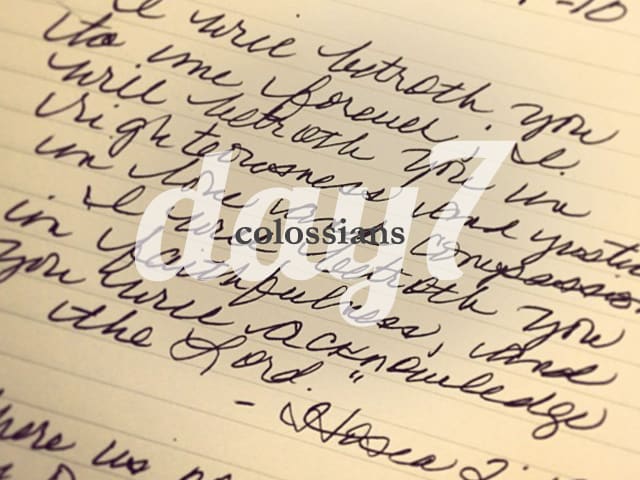 -10
I will betroth you
to me forever; I
will betroth you in
righteousness and justice
in love and compassion.
I will betroth you
in faithfulness, and
you will acknowledge
the Lord."
- Hosea 2:
here is
day7
colossians